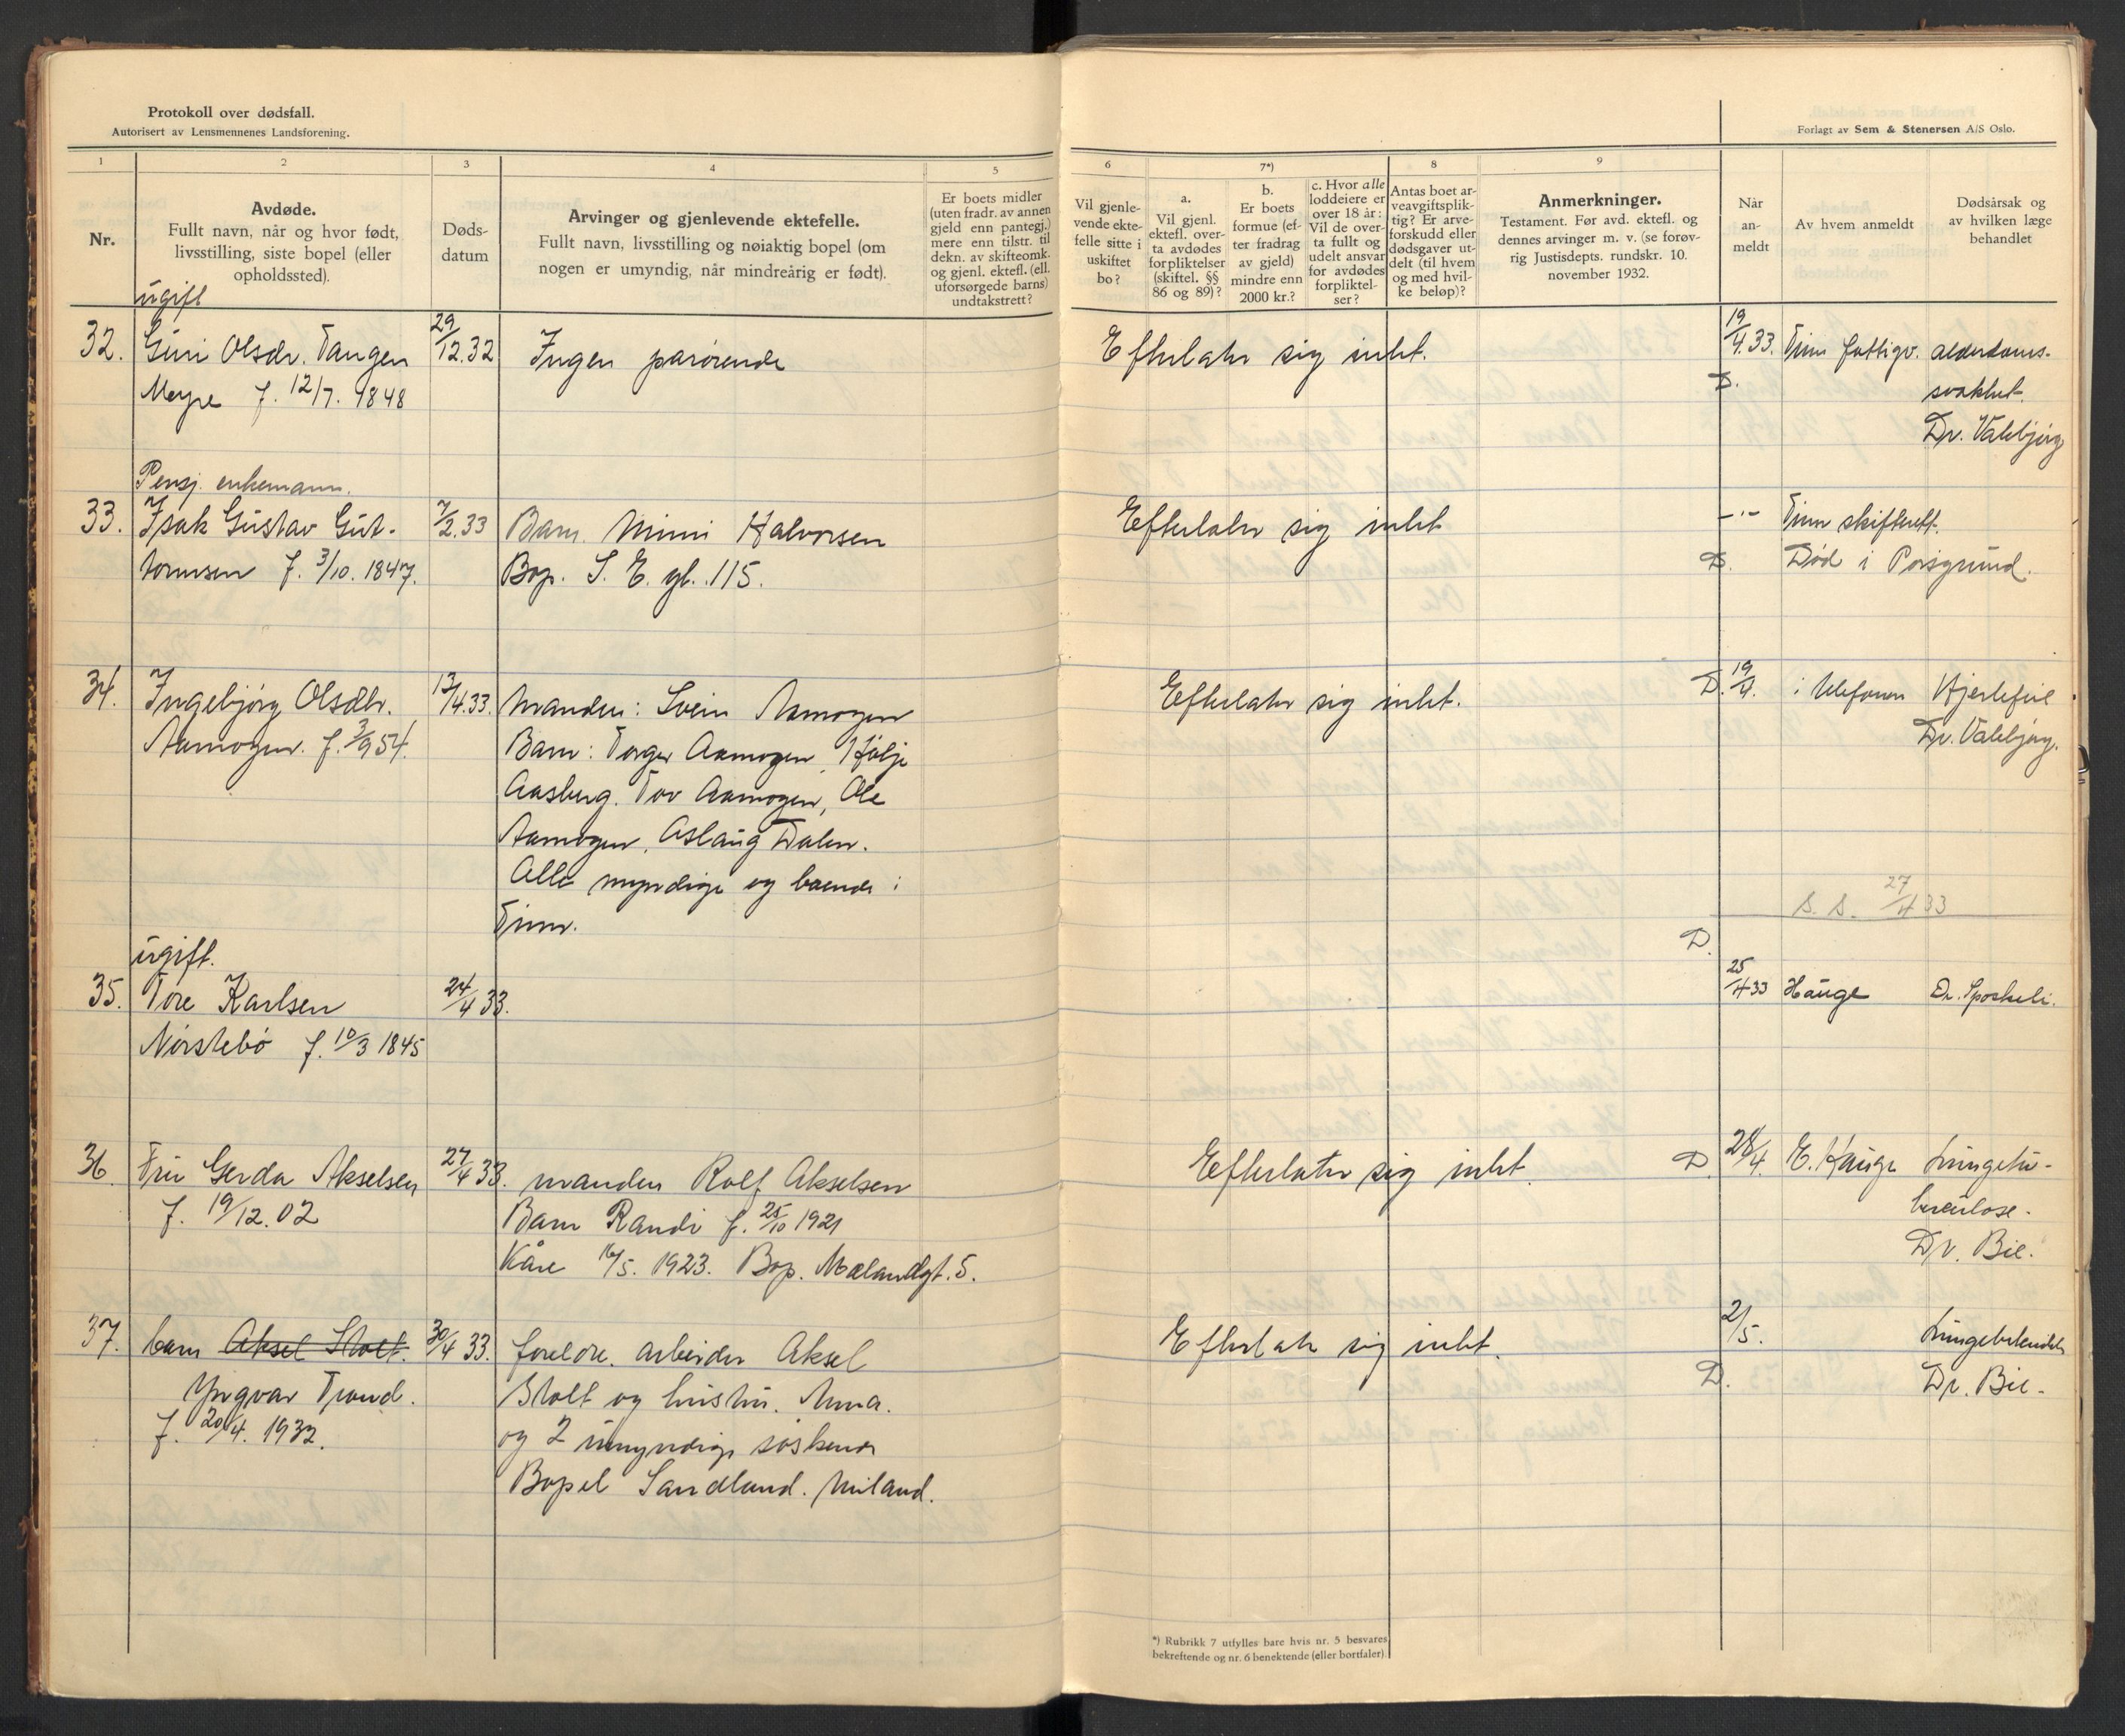 Protokoll over dødsfall.
Autorisert av Lensmennenes Landsforening.
1
2
3
4
5
Nr.
Avdøde.
Fullt navn, når og hvor født,
livsstilling, siste bopel (eller
opholdssted).
Døds-
datum
Arvinger og gjenlevende ektefelle.
Fullt navn, livsstilling og nøiaktig bopel (om
nogen er umyndig, når mindreårig er født).
Er boets midler
(uten fradr. av annen
gjeld enn pantegj.)
mere enn tilstr. til
dekn. av skifteomk.
og gjenl. ektefl. (ell.
uforsørgede barns)
undtakstrett?
ugift
32. Guri Olsdr. Tangen 29/12.32 Ingen parørende
Møyre f. 12/7. 1848
Pensj. enkemann.
33. Isak Gustav Gut- 7/2.33 Barn. Mimi Halvorsen
tormsen f. 3/10. 1847. Bop. S. E. gt. 115.
34. Ingebjørg Olsdtr. 13/4.33. Manden: Svein Aamogen
Aamogen. f. 3/9 54. Barn: Torger Aamogen, Hølje
Aasberg. Tov Aamogen, Ole
Aamogen, Aslaug Dalen.
Alle myndige og boende i
Tinn.
ugift.
35. Tore Karlsen 24/4 33.
Nørstebø f. 10/3 1845
36. Fru Gerda Akselsen 27/4 33. manden Rolf Akselsen
f. 19/12.02 Barn Randi f. 25/10 1921
Kåre 16/5. 1923. Bop. Mælandsgt. 5.
37. barn Aksel Stolt. 30/4 33. foreldre. arbeider Aksel
Yngvar Trond. Stolt og hustru. Anna.
f. 20/4. 1932. og 2 umyndige søskende
Bopel Sandland. Miland.
Forlagt av Sem & Stenersen A/S Oslo.
6
7*)
8
9
Vil gjenle-
vende ekte-
felle sitte i
uskiftet
bo?
a.
Vil gjenl.
ektefl. over-
ta avdødes
forpliktelser
(skiftel. §§
86 og 89)?
b.
Er boets
formue (ef-
ter fradrag
av gjeld)
mindre enn
2000 kr.?
c. Hvor alle
loddeiere er
over 18 år:
Vil de over-
ta fullt og
udelt ansvar
for avdødes
forpliktel-
ser?
Antas boet ar-
veavgiftsplik-
tig? Er arve-
forskudd eller
dødsgaver ut-
delt (til hvem
og med hvil-
ke beløp)?
Anmerkninger.
Testament. Før avd. ektefl. og
dennes arvinger m. v. (se forøv-
rig Justisdepts. rundskr. 10.
november 1932.
Når
an-
meldt
Av hvem anmeldt
Dødsårsak og
av hvilken læge
behandlet
Efterlater sig intet. 19/4.33. Tinn fattigv. alderdoms-
D. svakhet.
Dr. Valebjørg
Efterlater sig intet -"- Tinn skifterett.
D. Død i Porsgrund.
Efterlater sig intet. D. 19/4. i telefonen Hjertefeil
Dr. Valebjørg.
S. S. 27/4 33
D.
25/4 33 Hauge Dr. Sposheli.
Efterlater sig intet. D 28/4. E. Hauge Lungetu-
berkulose.
Dr. Bie.
Efterlater sig intet. 2/5. Lungebetendelse
D. Dr. Bie.
*) Rubrikk 7 utfylles bare hvis nr. 5 besvares
bekreftende og nr. 6 benektende (eller bortfaler).